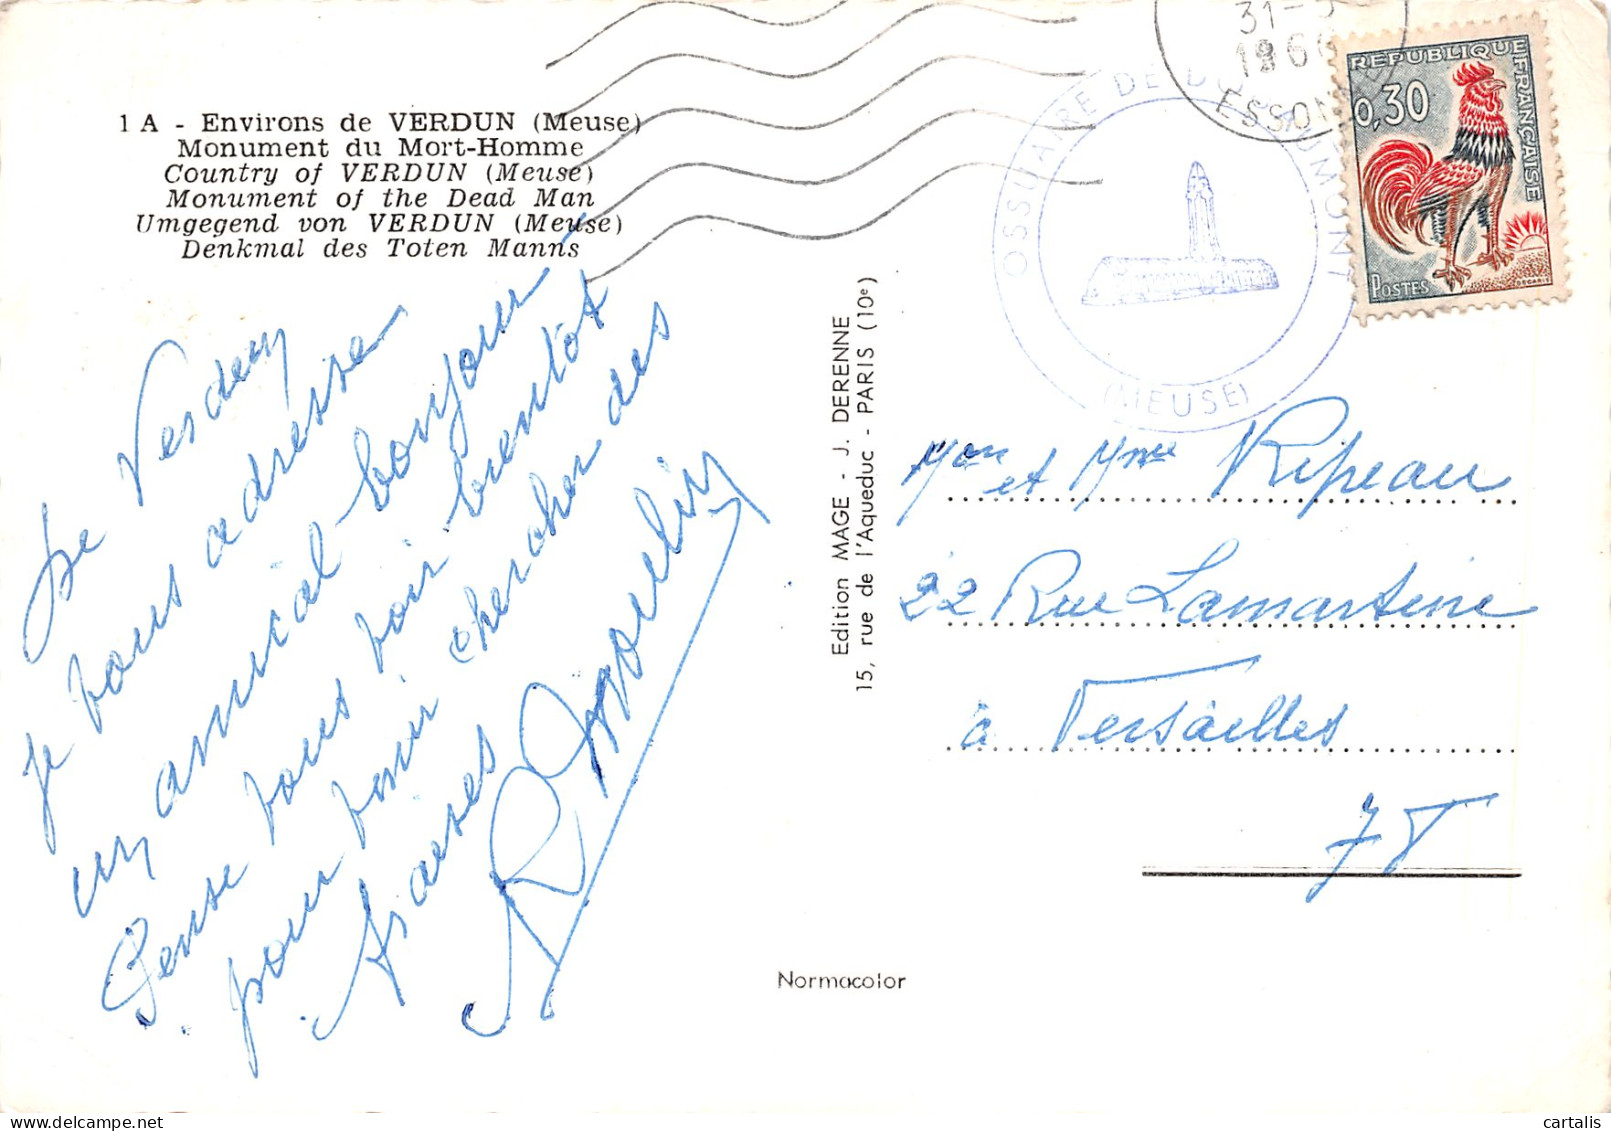 1 A - Environs de VERDUN (Meuse)
Monument du Mort-Homme
Country of VERDUN (Meuse)
Monument of the Dead Man
Umgegend von VERDUN (Meuse)
Denkmal des Toten Manns
De Verdun
je vous adresse
un amical bonjour
Pense vous voir bientôt
pour venir chercher des
Edition MAGE - J. DERENNE
15, rue de l'Aqueduc - PARIS (10e)
Normacolor
31-5
196
ESSON
OSSUAIRE DE DOUAUMONT
(MEUSE)
REPUBLIQUE FRANÇAISE
0,30
POSTES
DECARIS
et Mme Ripeau
22 Rue Lamartine
à Versailles
cartalis